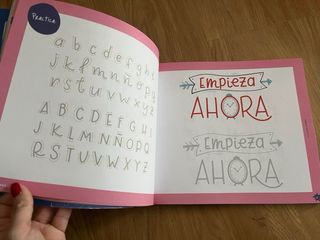 Practica
a b c d e f g h i
j k l m n ñ o p q
r s t u v w x y z
A B C D E F G H I
J K L M N Ñ O P Q
R S T U V W X Y Z
Empieza
AHORA
Empieza
AHORA